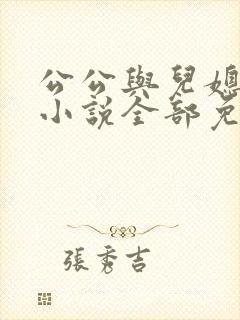 公公與兒媳
小說全部免
張秀吉